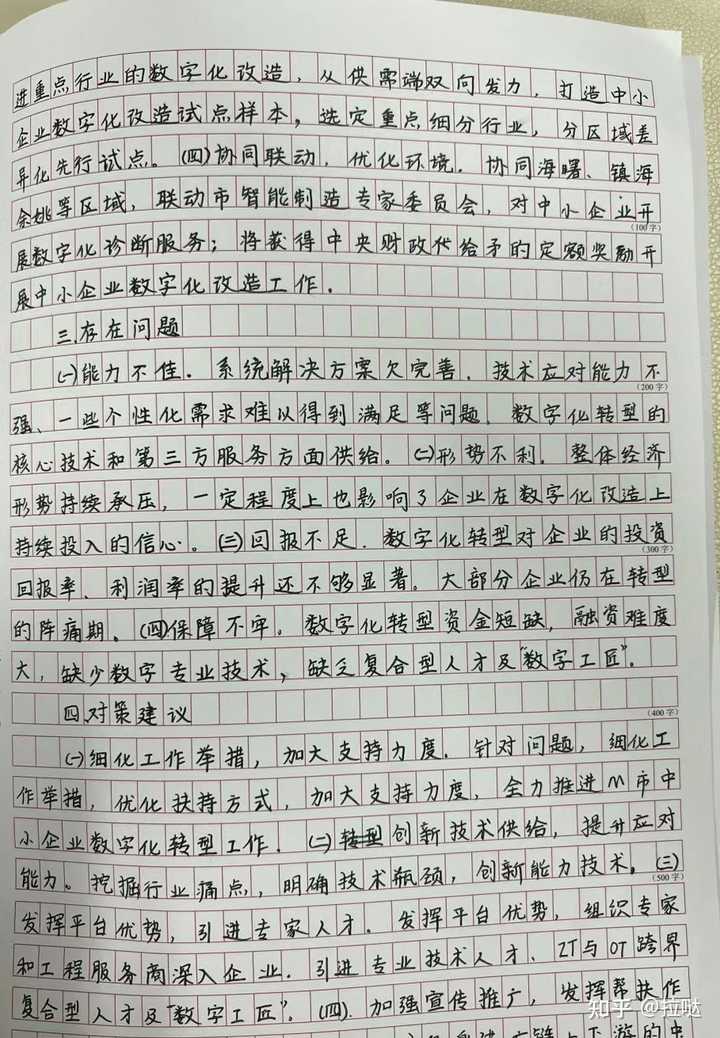 进重点行业的数字化改造，从供需端双向发力，打造中小
企业数字化改造试点样本，选定重点细分行业，分区域差
异化先行试点。(四)协同联动，优化环境。协同海曙、镇海
余姚等区域，联动市智能制造专家委员会，对中小企业开
(100字)
展数字化诊断服务；将获得中央财政代给予的定额奖励开
展中小企业数字化改造工作。
三.存在问题
(一)能力不佳。系统解决方案欠完善、技术应对能力不
(200字)
强、一些个性化需求难以得到满足等问题、数字化转型的
核心技术和第三方服务方面供给。(二)形势不利。整体经济
形势持续承压，一定程度上也影响了企业在数字化改造上
持续投入的信心。(三)回报不足.数字化转型对企业的投资
(300字)
回报率、利润率的提升还不够显著。大部分企业仍在转型
的阵痛期。(四)保障不牢。数字化转型资金短缺，融资难度
大，缺少数字专业技术，缺乏复合型人才及“数字工匠”。
四.对策建议
(400字)
(一)细化工作举措，加大支持力度。针对问题，细化工
作举措，优化扶持方式，加大支持力度，全力推进M市中
小企业数字化转型工作.(二)创新技术供给，提升应对
能力。挖掘行业痛点，明确技术瓶颈，创新能力技术。(三)
(500字)
发挥平台优势，引进专家人才.发挥平台优势，组织专家
和工程服务商深入企业.引进专业技术人才、IT与OT跨界
复合型人才及“数字工匠”。(四).加强宣传推广，发挥帮扶作
知乎 @拉哒